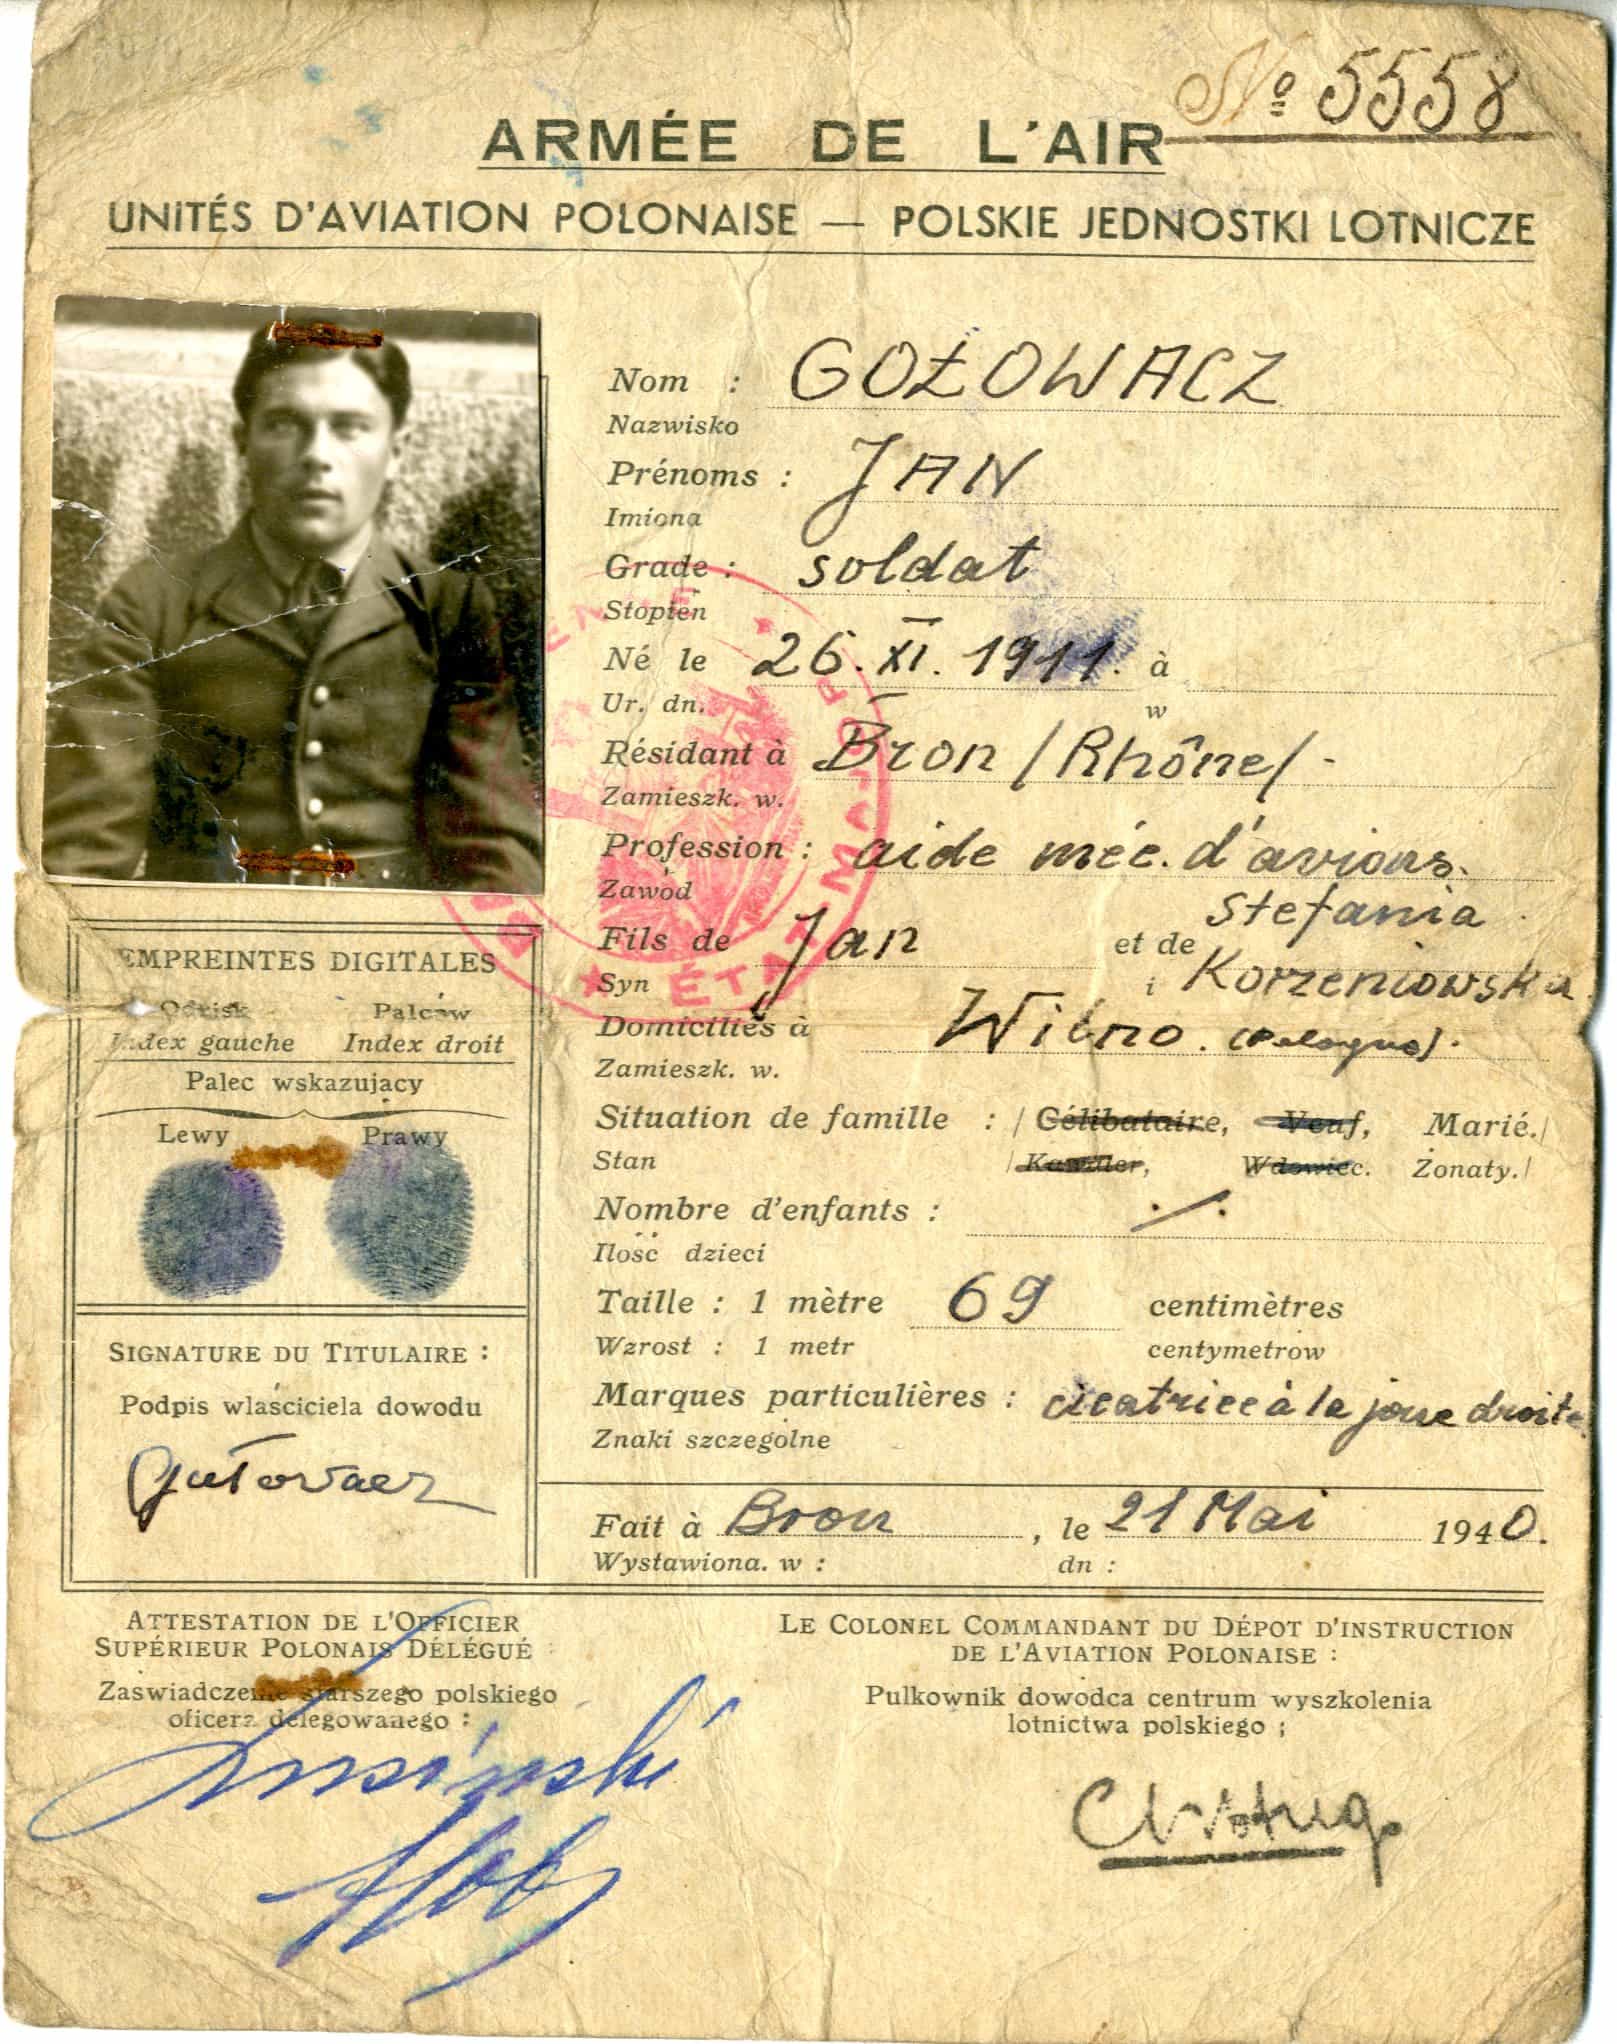 № 5558
ARMÉE DE L'AIR
UNITÉS D'AVIATION POLONAISE — POLSKIE JEDNOSTKI LOTNICZE
Nom : GOŁOWACZ
Nazwisko
Prénoms : JAN
Imiona
Grade : soldat
Stopień
Né le 26. XI. 1911. à
Ur. dn. w
Résidant à Bron /Rhône/ -
Zamieszk. w.
Profession : aide méc. d'avions.
Zawód
Fils de Jan et de Stefania
Syn i Korzeniowska
Domiciliés à Wilno. (Pologne).
Zamieszk. w.
Situation de famille : / Célibataire, Veuf, Marié./
Stan / Kawaler, Wdowiec. Żonaty./
Nombre d'enfants : ./.
Ilość dzieci
Taille : 1 mètre 69 centimètres
Wzrost : 1 metr centymetrow
Marques particulières : cicatrice à la joue droite.
Znaki szczególne
Fait à Bron, le 21 Mai 1940.
Wystawiona. w : dn :
EMPREINTES DIGITALES
Odcisk Palców
Index gauche Index droit
Palec wskazujący
Lewy Prawy
SIGNATURE DU TITULAIRE :
Podpis właściciela dowodu
ÉTAT-MAJOR
ATTESTATION DE L'OFFICIER
SUPÉRIEUR POLONAIS DÉLÉGUÉ :
Zaswiadczenie starszego polskiego
oficera delegowanego :
LE COLONEL COMMANDANT DU DÉPOT D'INSTRUCTION
DE L'AVIATION POLONAISE :
Pulkownik dowodca centrum wyszkolenia
lotnictwa polskiego ;